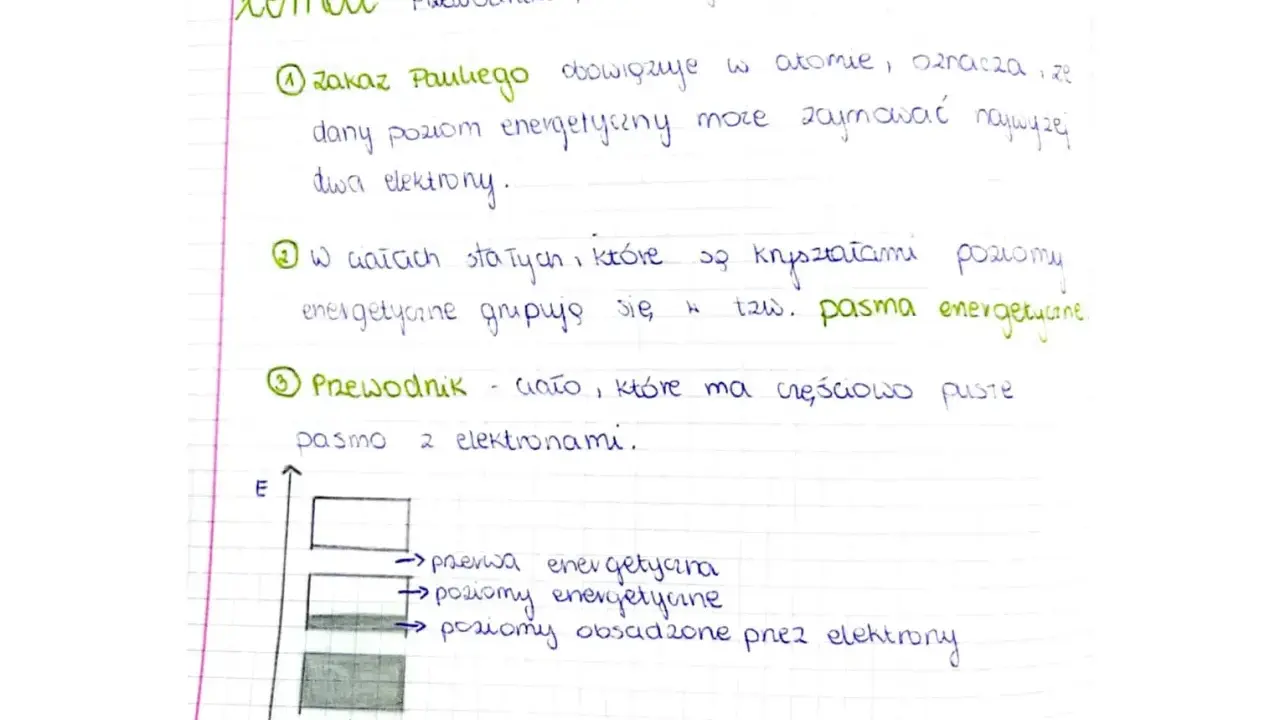 ① Zakaz Pauliego obowiązuje w atomie, oznacza, że
dany poziom energetyczny może zajmować najwyżej
dwa elektrony.
② W ciałach stałych, które są kryształami poziomy
energetyczne grupują się w tzw. pasma energetyczne
③ Przewodnik - ciało, które ma częściowo puste
pasmo z elektronami.
E
→ przerwa energetyczna
→ poziomy energetyczne
→ poziomy obsadzone przez elektrony